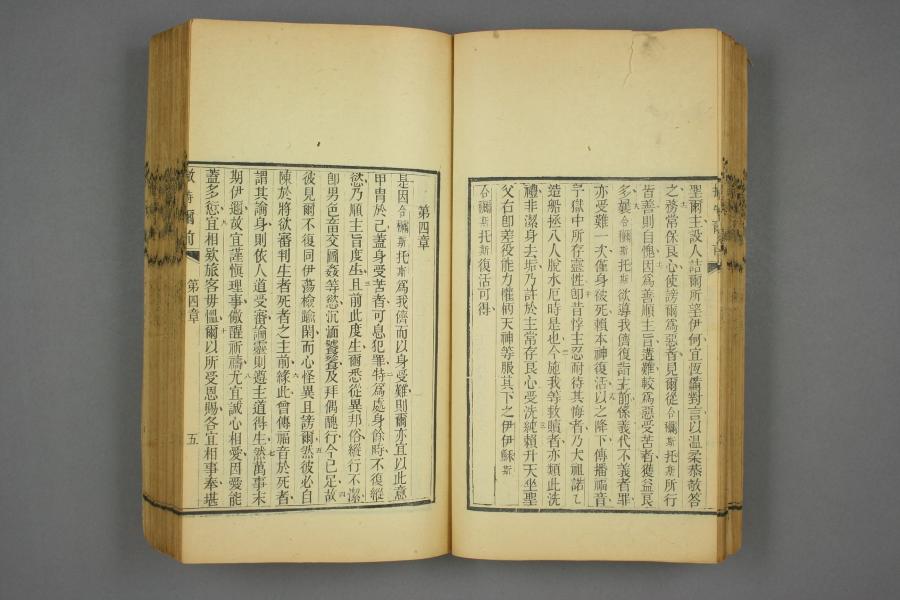 聖爾主設人詰爾所望伊何宜恆備對言以温柔恭敬答
之務常保良心使謗爾爲惡者見爾從合爾斯托斯所行
皆善則自愧因爲善順主旨遭難較爲惡受苦者獲益良
多曩合爾斯托斯欲導我儕復詣主前係義代不義者罪
亦受難一次僅身彼死賴本神復活以之降下傳播福音
於獄中所存靈性卽昔悖主忍耐待其悔者乃大祖諾乙
造船拯八人脫水厄時是也今施我等救贖者亦類此洗
禮非潔身去垢乃許於主常存良心受洗純賴升天坐聖
父右卽差役能力權柄天神等服其下之伊伊穌斯
合爾斯托斯復活可得
第四章
是因合爾斯托斯爲我儕而以身受難則爾亦宜以此意
甲冑於己蓋身受苦者可息犯罪特爲處身餘時不復縱
慾乃順主旨度生且前此度生爾悉從異邦俗縱行不潔
卽男色畜交圖姦等慾沉湎饕餮及拜偶醜行今已足故
彼見爾不復同伊蕩檢踰閑而心怪異且謗爾然彼必自
陳於將欲審判生者死者之主前緣此曾傳福音於死者
謂其論身則依人道受審論靈則遵主道得生然萬事末
期伊邇故宜謹愼理事儆醒祈禱尤宜誠心相愛因愛能
蓋多愆宜相欵旅客毋慍爾以所受恩賜各宜相事奉堪
第四章
五